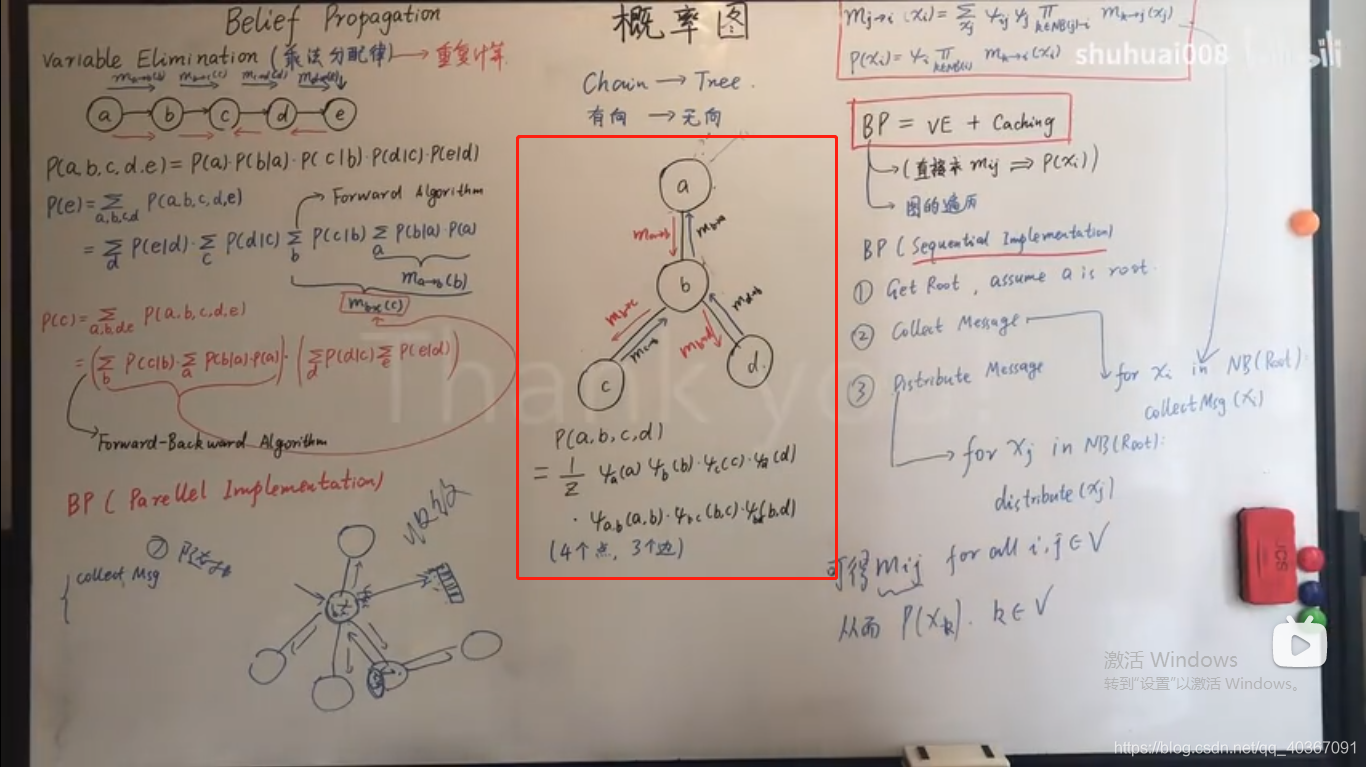 Belief Propagation
Variable Elimination (乘法分配律) → 重复计算.
m_{a→b}(b) m_{b→c}(c)
a b c d e
P(a,b,c,d,e) = P(a)·P(b|a)·P(c|b)·P(d|c)·P(e|d)
P(e) = ∑_{a,b,c,d} P(a,b,c,d,e)
→ Forward Algorithm
= ∑_d P(e|d)·∑_c P(d|c) ∑_b P(c|b) ∑_a P(b|a)·P(a)
m_{a→b}(b)
m_{b→c}(c)
P(c) = ∑_{a,b,d,e} P(a,b,c,d,e)
= (∑_b P(c|b)·∑_a P(b|a)·P(a))·(∑_d P(d|c) ∑_e P(e|d))
Forward-Backward Algorithm
BP (Parellel Implementation)
collect Msg
概率图
Chain → Tree.
有向 → 无向
a
m_{a→b} m_{b→a}
b
m_{b→c} m_{c→b} m_{b→d} m_{d→b}
c d
P(a,b,c,d)
= 1/Z ψ_a(a) ψ_b(b)·ψ_c(c)·ψ_d(d)
· ψ_{a,b}(a,b)·ψ_{bc}(b,c)·ψ_{bd}(b,d)
(4个点, 3个边)
m_{j→i}(x_i) = ∑_{x_j} ψ_{ij} ψ_j ∏_{k∈NB(j)-i} m_{k→j}(x_j)
P(x_i) = ψ_i ∏_{k∈NB(i)} m_{k→i}(x_i)
shuhuai008
BP = VE + Caching
→ (直接求 m_{ij} ⇒ P(x_i))
→ 图的遍历
BP (Sequential Implementation)
① Get Root, assume a is root.
② Collect Message
for x_i in NB(Root):
collectMsg(x_i)
③ Distribute Message
for x_j in NB(Root):
distribute(x_j)
可得 m_{ij} for all i,j∈V
从而 P(x_k). k∈V
Thank you!
JCS
激活 Windows
转到"设置"以激活 Windows。
https://blog.csdn.net/qq_40367091